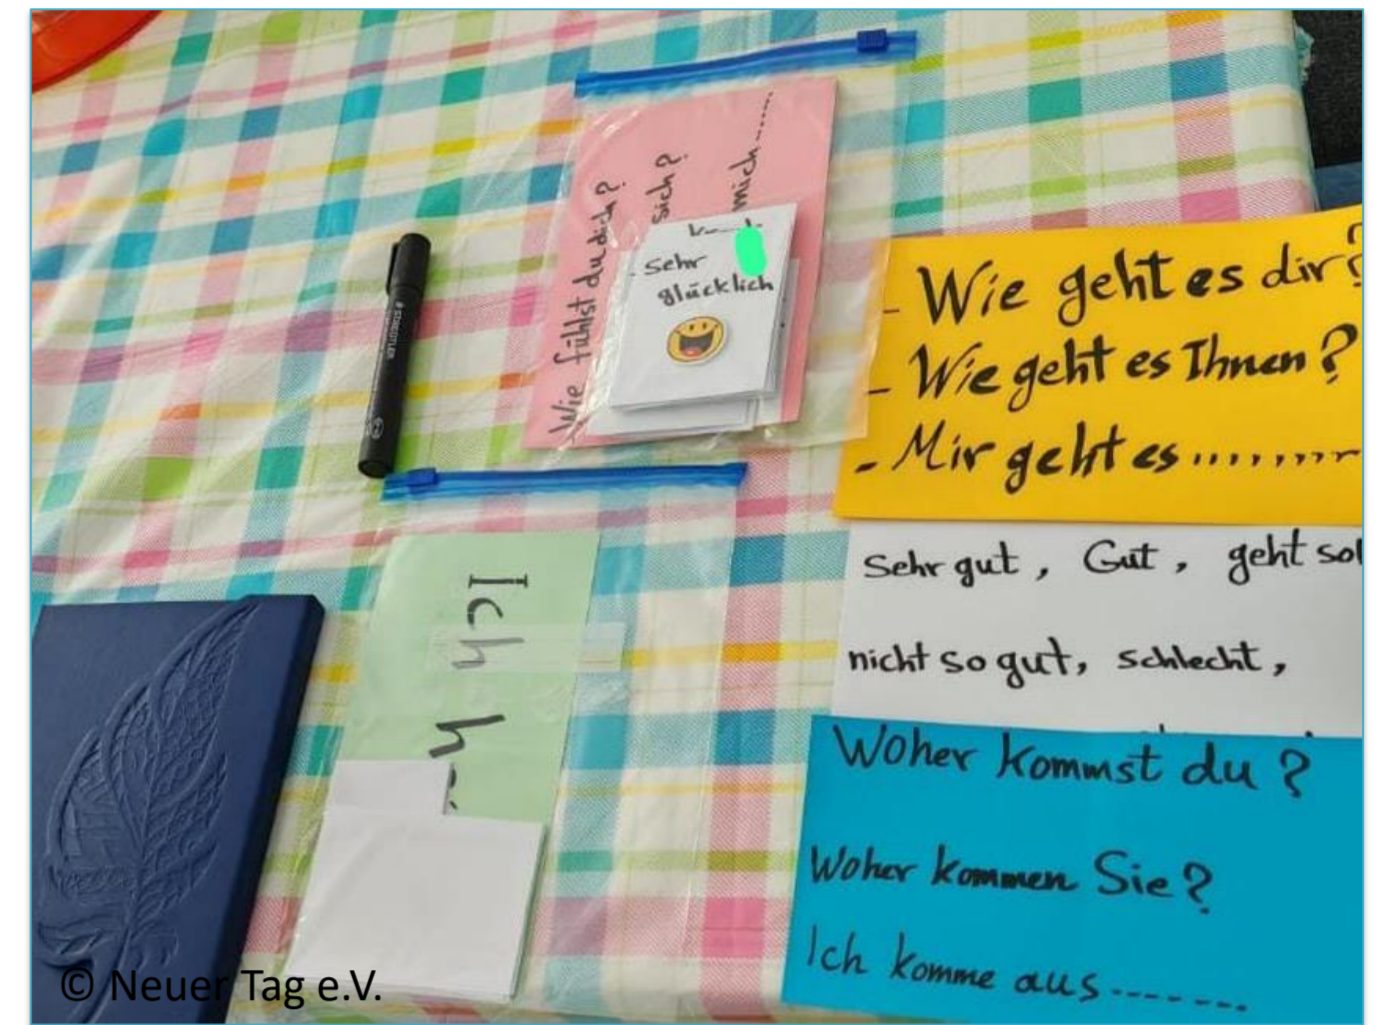 Wie fühlst du dich?
sich?
mich......
- Sehr
glücklich
STAEDTLER
- Wie geht es dir?
- Wie geht es Ihnen?
- Mir geht es .........
Sehr gut, Gut, geht so
nicht so gut, schlecht,
Ich
Woher kommst du?
Woher kommen Sie?
Ich komme aus .......
© Neuer Tag e.V.